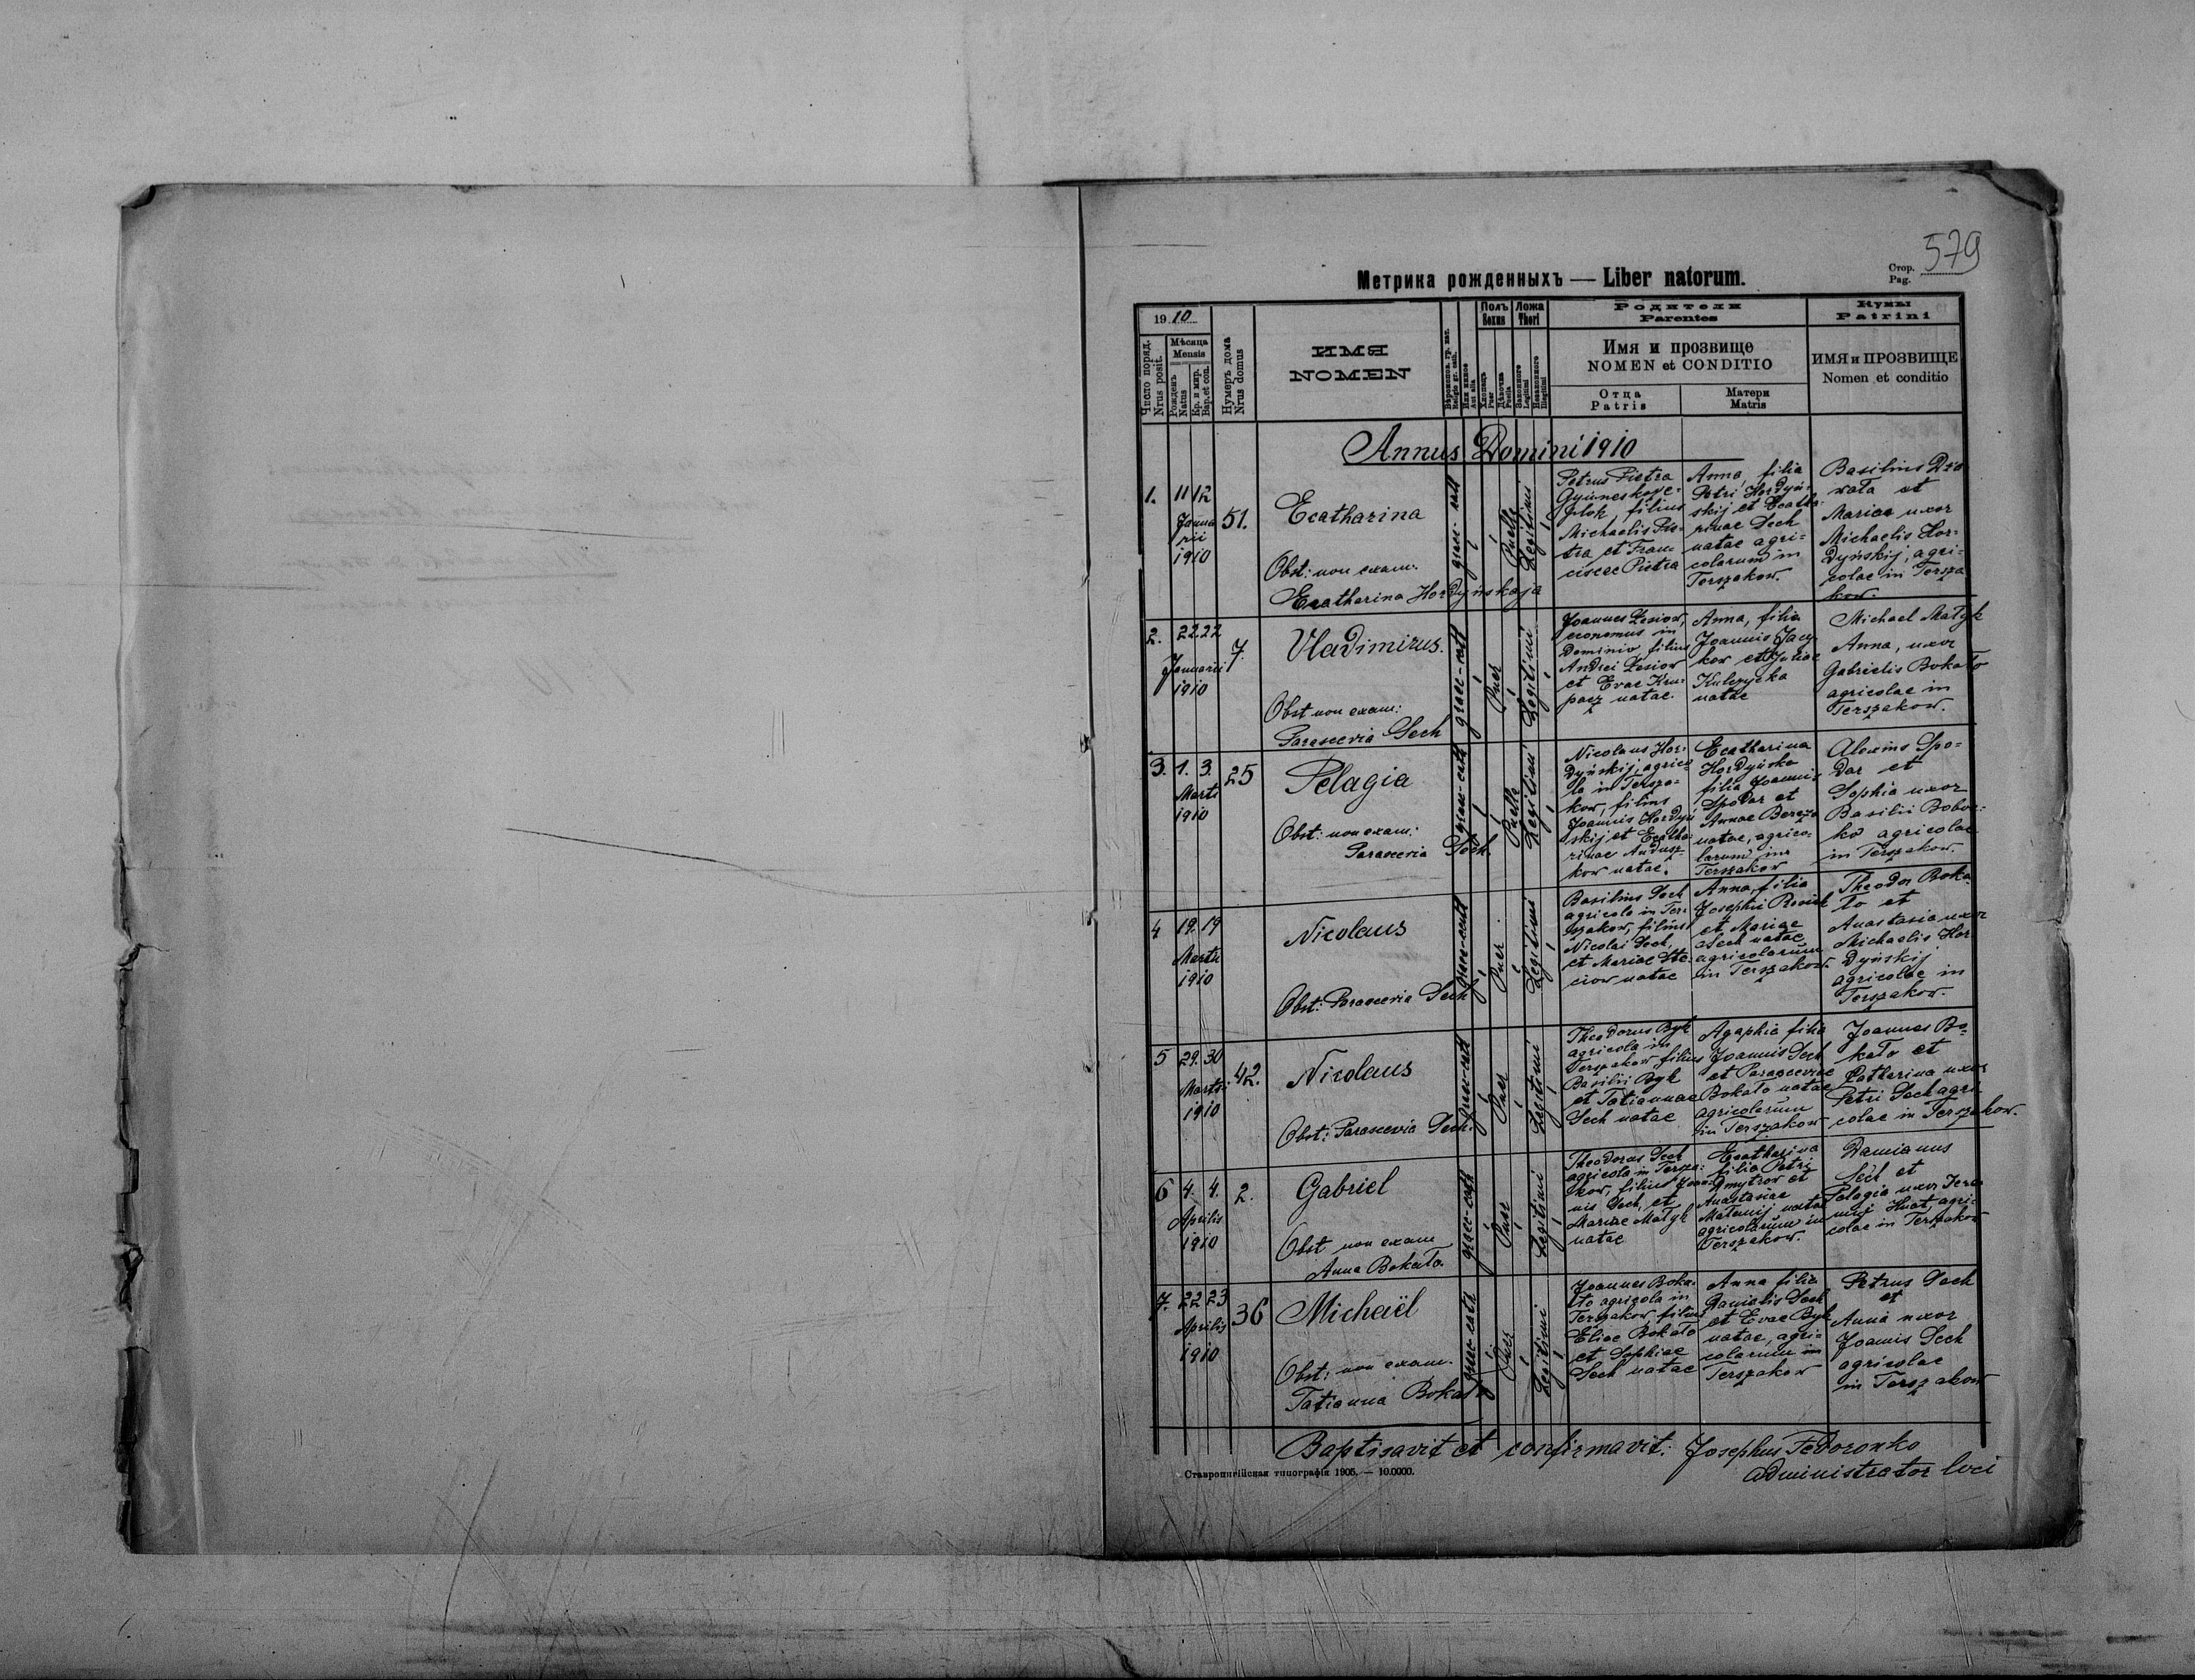 579
Стор.
Pag.
Метрика рожденныхъ — Liber natorum.
1910
Число поряд.
Nrus posit.
Мѣсяца
Mensis
Рожденъ
Natus
Кр. и мѵр.
Bap. et con.
Нумеръ дома
Nrus domus
ИМЯ
NOMEN
Или инное
Aut alia
Полъ
Sexus
Хлопецъ
Puer
Дѣвочка
Puella
Ложа
Thori
Законного
Legitimi
Незаконного
Illegitimi
Родители
Parentes
Имя и прозвище
NOMEN et CONDITIO
Отца
Patris
Матери
Matris
Кумы
Patrini
ИМЯ и ПРОЗВИЩЕ
Nomen et conditio
Annus Domini 1910
1.
11 12
Janua
rii
1910
51.
Ecatharina
Obst: non exam:
Ecatharina Hordyńskaja
graec-cath
Puella
Legitimi
Petrus Pietra
filius
Michaelis Pie-
tra et Fran-
ciscae Pietra
Anna, filia
Petri Hordyń-
skij et Ecatha-
rinae Sech
natae agri-
colarum in
Terszakow.
Basilius
et
Maria uxor
Michaelis Hor-
dyńskij, agri-
colae in Tersza
kow.
2.
22 22
Januarii
1910
7.
Vladimirus.
Obst non exam:
Parascevia Sech
graec-cath
Puer
Legitimi
Joannes Lesiow,
economus in
Dominio, filius
Andrei Lesiow
et Evae Kru-
pacz natae.
Anna, filia
Joannis Jacy-
kow et Juliae
Kulczycka
natae
Michael Matyk
Anna, uxor
Gabrielis Bokało
agricolae in
Terszakow.
3.
1. 3.
Marti
1910
25
Pelagia
Obst: non exam:
Parascevia Sech.
graec-cath
Puella
Legitimi
Nicolaus Hor-
dyńskij, agrico-
la in Tersza-
kow, filius
Joannis Hordyń
skij et Ecatha-
rinae Andusz-
kow natae.
Ecatharina
Hordyńska
filia Joannis
Spodar et
Annae Bereza
natae, agrico-
larum in
Terszakow
Alexius Spo-
dar et
Sophia uxor
Basilii Bobor-
ko agricolae
in Terszakow.
4
19. 19
Martii
1910
Nicolaus
Obst: Parascevia Sech
graec-cath
Puer
Legitimi
Basilius Sech
agricola in Ter-
szakow, filius
Nicolai Sech,
et Mariae Ste-
ciow natae
Anna, filia
Josephi
et Mariae
Sech natae
agricolarum
in Terszakow.
Theodor Boka
ło et
Anastasia uxor
Michaelis Hor
dyńskij
agricolae in
Terszakow.
5
29. 30
Martii
1910
42.
Nicolaus
Obst: Parascevia Sech.
graec-cath
Puer
Legitimi
Theodorus Byk
agricola in
Terszakow filius
Basilii Byk
et Tatiannae
Sech natae
Agaphia filia
Joannis Sech
et Parasceviae
Bokało natae
agricolarum
in Terszakow
Joannes Bo-
kało et
Catharina uxor
Petri Sech agri
colae in Terszakow.
6
4. 4.
Aprilis
1910
2.
Gabriel
Obst non exam
Anna Bokało.
graec-cath
Puer
Legitimi
Theodorus Sech
agricola in Tersza-
kow, filius Joan-
nis Sech, et
Mariae Matyk
natae
Ecatharina
filia Petri
Dmytrow et
Anastasiae
natae
agricolarum in
Terszakow.
Damianus
Sech et
Pelagia uxor Jere
mij Hnat, agri-
colae in Terszakow
7.
22 23
Aprilis
1910
36
Michaël
Obst: non exam.
Tatianna Bokało
graec-cath
Puer
Legitimi
Joannes Boka-
ło agricola in
Terszakow, filius
Eliae Bokało
et Sophiae
Sech natae
Anna filia
Danielis Sech
et Evae Byk
natae, agri-
colarum in
Terszakow
Petrus Sech
et
Anna uxor
Joannis Sech
agricolae
in Terszakow
Baptisavit et confirmavit: Josephus Fedoronko
administrator loci
Ставропигійская типографія 1905. — 10.0000.